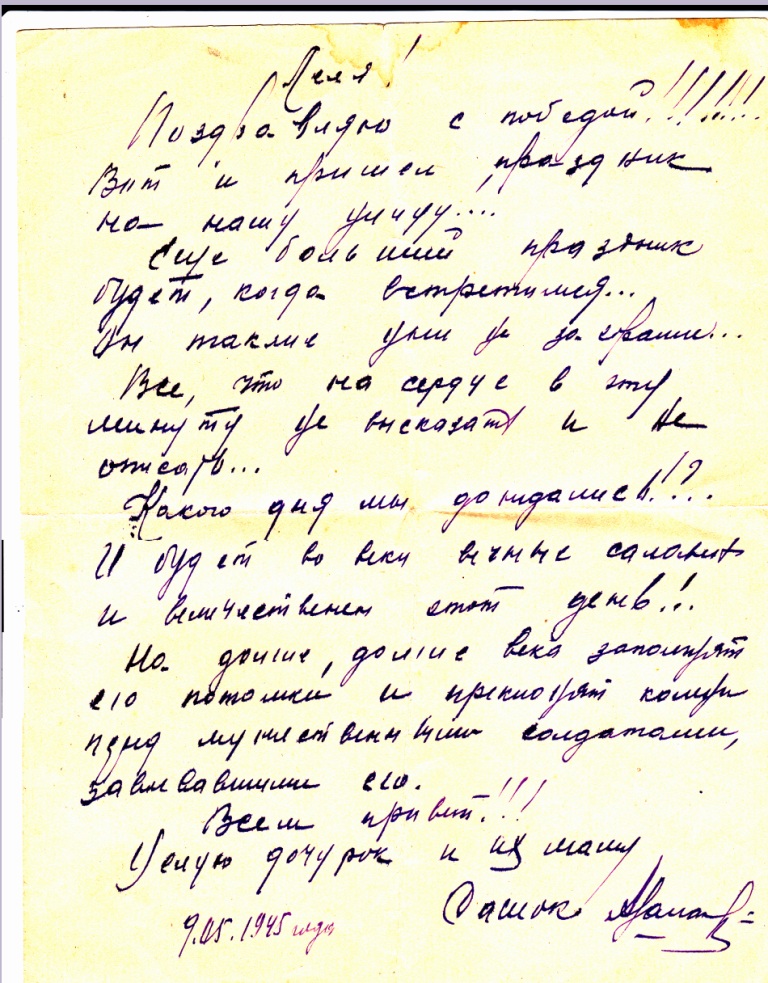 Леля!
Поздравляю с победой!!!!!!!
Вот и пришел праздник
на нашу улицу....
Еще больший праздник
будет, когда встретимся...
Он также уже не за горами...
Все, что на сердце в эту
минуту не высказать и не
описать...
Какого дня мы дождались!!?..
И будет во веки вечные славен
и величественен этот день!!.
На долгие, долгие века запомнят
его потомки и преклонят колени
перед мужественными солдатами,
завоевавшими его.
Всем привет!!!
Целую дочурок и их маму
Сашок
9.05.1945 года